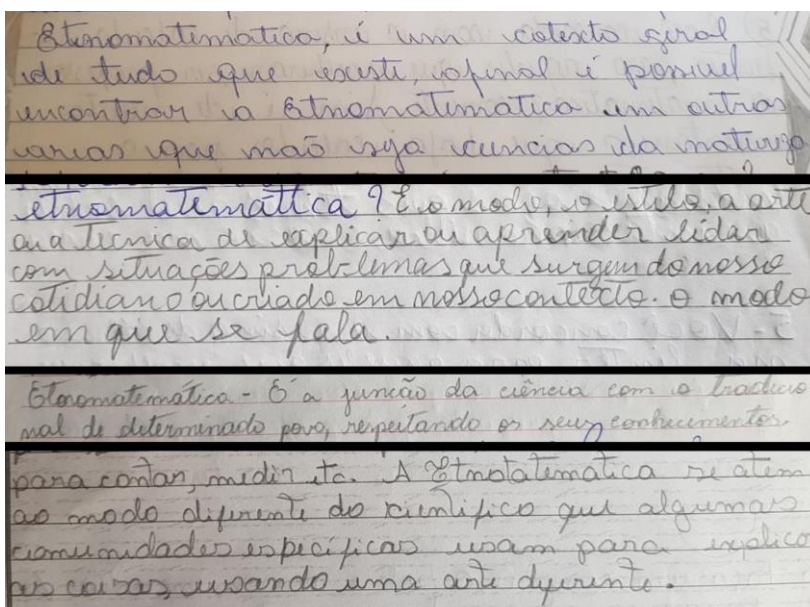 Etnomatimática, é um cotexto geral
de tudo que existe, afinal é possivel
encontrar a Etnomatimática em outras
varias que não seja ciencias da natureza
etnomatemáttica ? E o modo, o estilo, a arte
ou a tecnica de explicar ou aprender lidar
com situações problemas que surgem do nosso
cotidiano ou criado em nosso contexto. O modo
em que se fala.
Etonomatemática - É a junção da ciência com o tradicio
nal de determinado povo, respeitando os seus conhecimentos.
para contar, medir etc. A Etnotatemática se atem
ao modo diferente do cientifico que algumas
comunidades especificas usam para explica
as coisas, usando uma arte diferente.